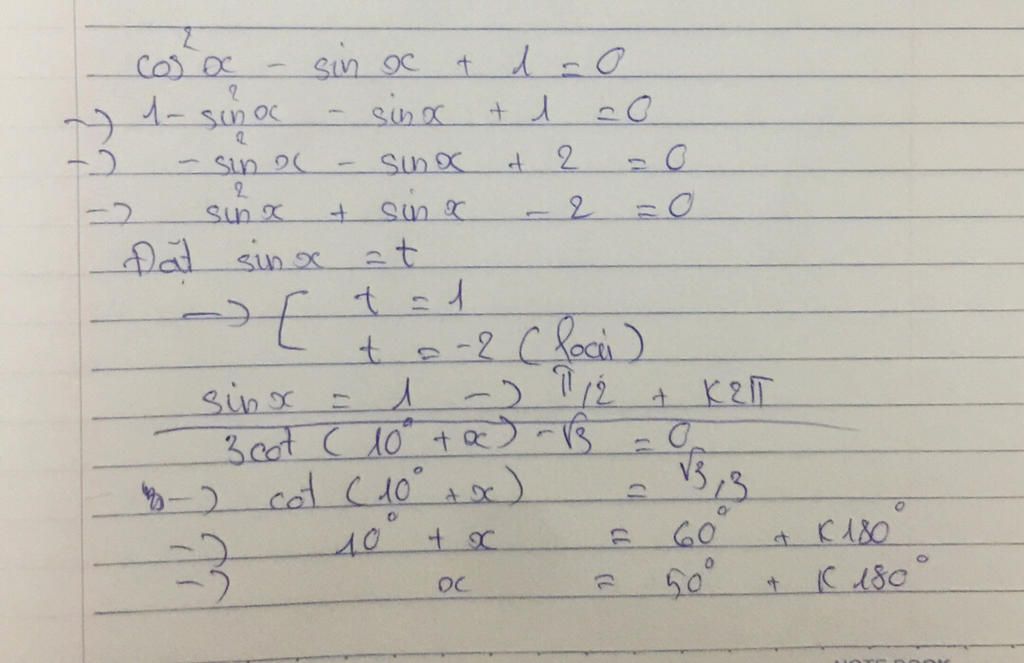 cos²x - sin x + 1 = 0
→ 1 - sin²x - sin x + 1 = 0
→ - sin²x - sin x + 2 = 0
→ sin²x + sin x - 2 = 0
Đặt sin x = t
→ [ t = 1
t = -2 (loại)
sin x = 1 → π/2 + K2π
3cot (10° + x) - √3 = 0
→ cot (10° + x) = √3/3
→ 10° + x = 60° + K180°
→ x = 50° + K180°